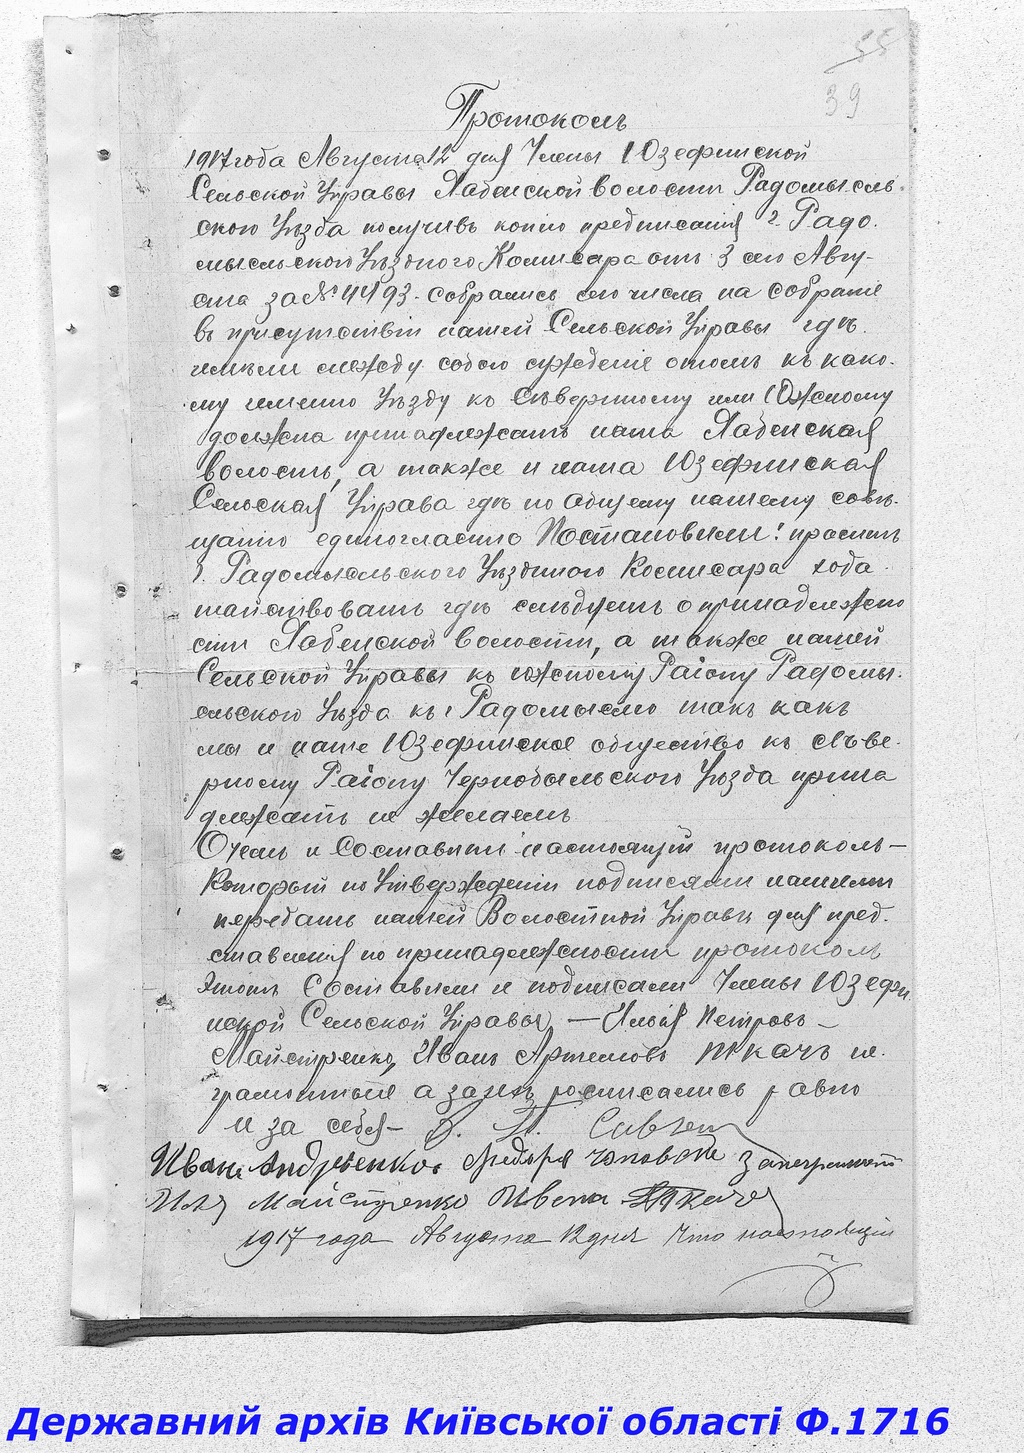 55
39
Протоколъ
1917 года Августа 12 дня Члены Юзефинской
Сельской Управы Хабенской волости Радомысль-
скаго Уѣзда получивъ копию предписанія г. Радо-
мысльскаго Уѣзднаго Комисара отъ 3 сего Авгу-
ста за № 4493. собрались сего числа на собраніе
въ присутствіи нашей Сельской Управы гдѣ
имѣли между собою суждение отомъ къ како-
му именно Уѣзду къ Сѣверному или Южному
должна принадлежать наша Хабенская
волость, а также и наша Юзефинская
Сельская Управа гдѣ по общему нашему совѣ-
щанию единогласно Постановили: просить
г. Радомысльского Уѣзднаго Комисара хода-
тайствовать гдѣ слѣдуетъ о принадлежно
сти Хабенской волости, а также нашей
Сельской Управы къ южному Раіону Радомы-
сльского Уѣзда къ г Радомыслю такъ какъ
мы и наше Юзефинское общество къ Сѣве-
рному Раіону Чернобыльского Уѣзда прина
длежать не желаемъ
Очемъ и Составили настоящій протоколъ—
Который по Утвержденіи подписями нашими
передать нашей Волостной Управѣ для пред-
ставленія по принадлежности протоколъ
этотъ Составили и подписали Члены Юзефи
нской Сельской Управы, — Илья Петровъ —
Майстренко, Иванъ Артемовъ Ткачъ не-
грамотные а за нихъ росписались равно
и за себя —
Иванъ Андрѣенко Федоръ
Илья Майстренко Ивана Ткача
1917 года Августа 12 дня Что настоящій
Державний архів Київської області Ф.1716